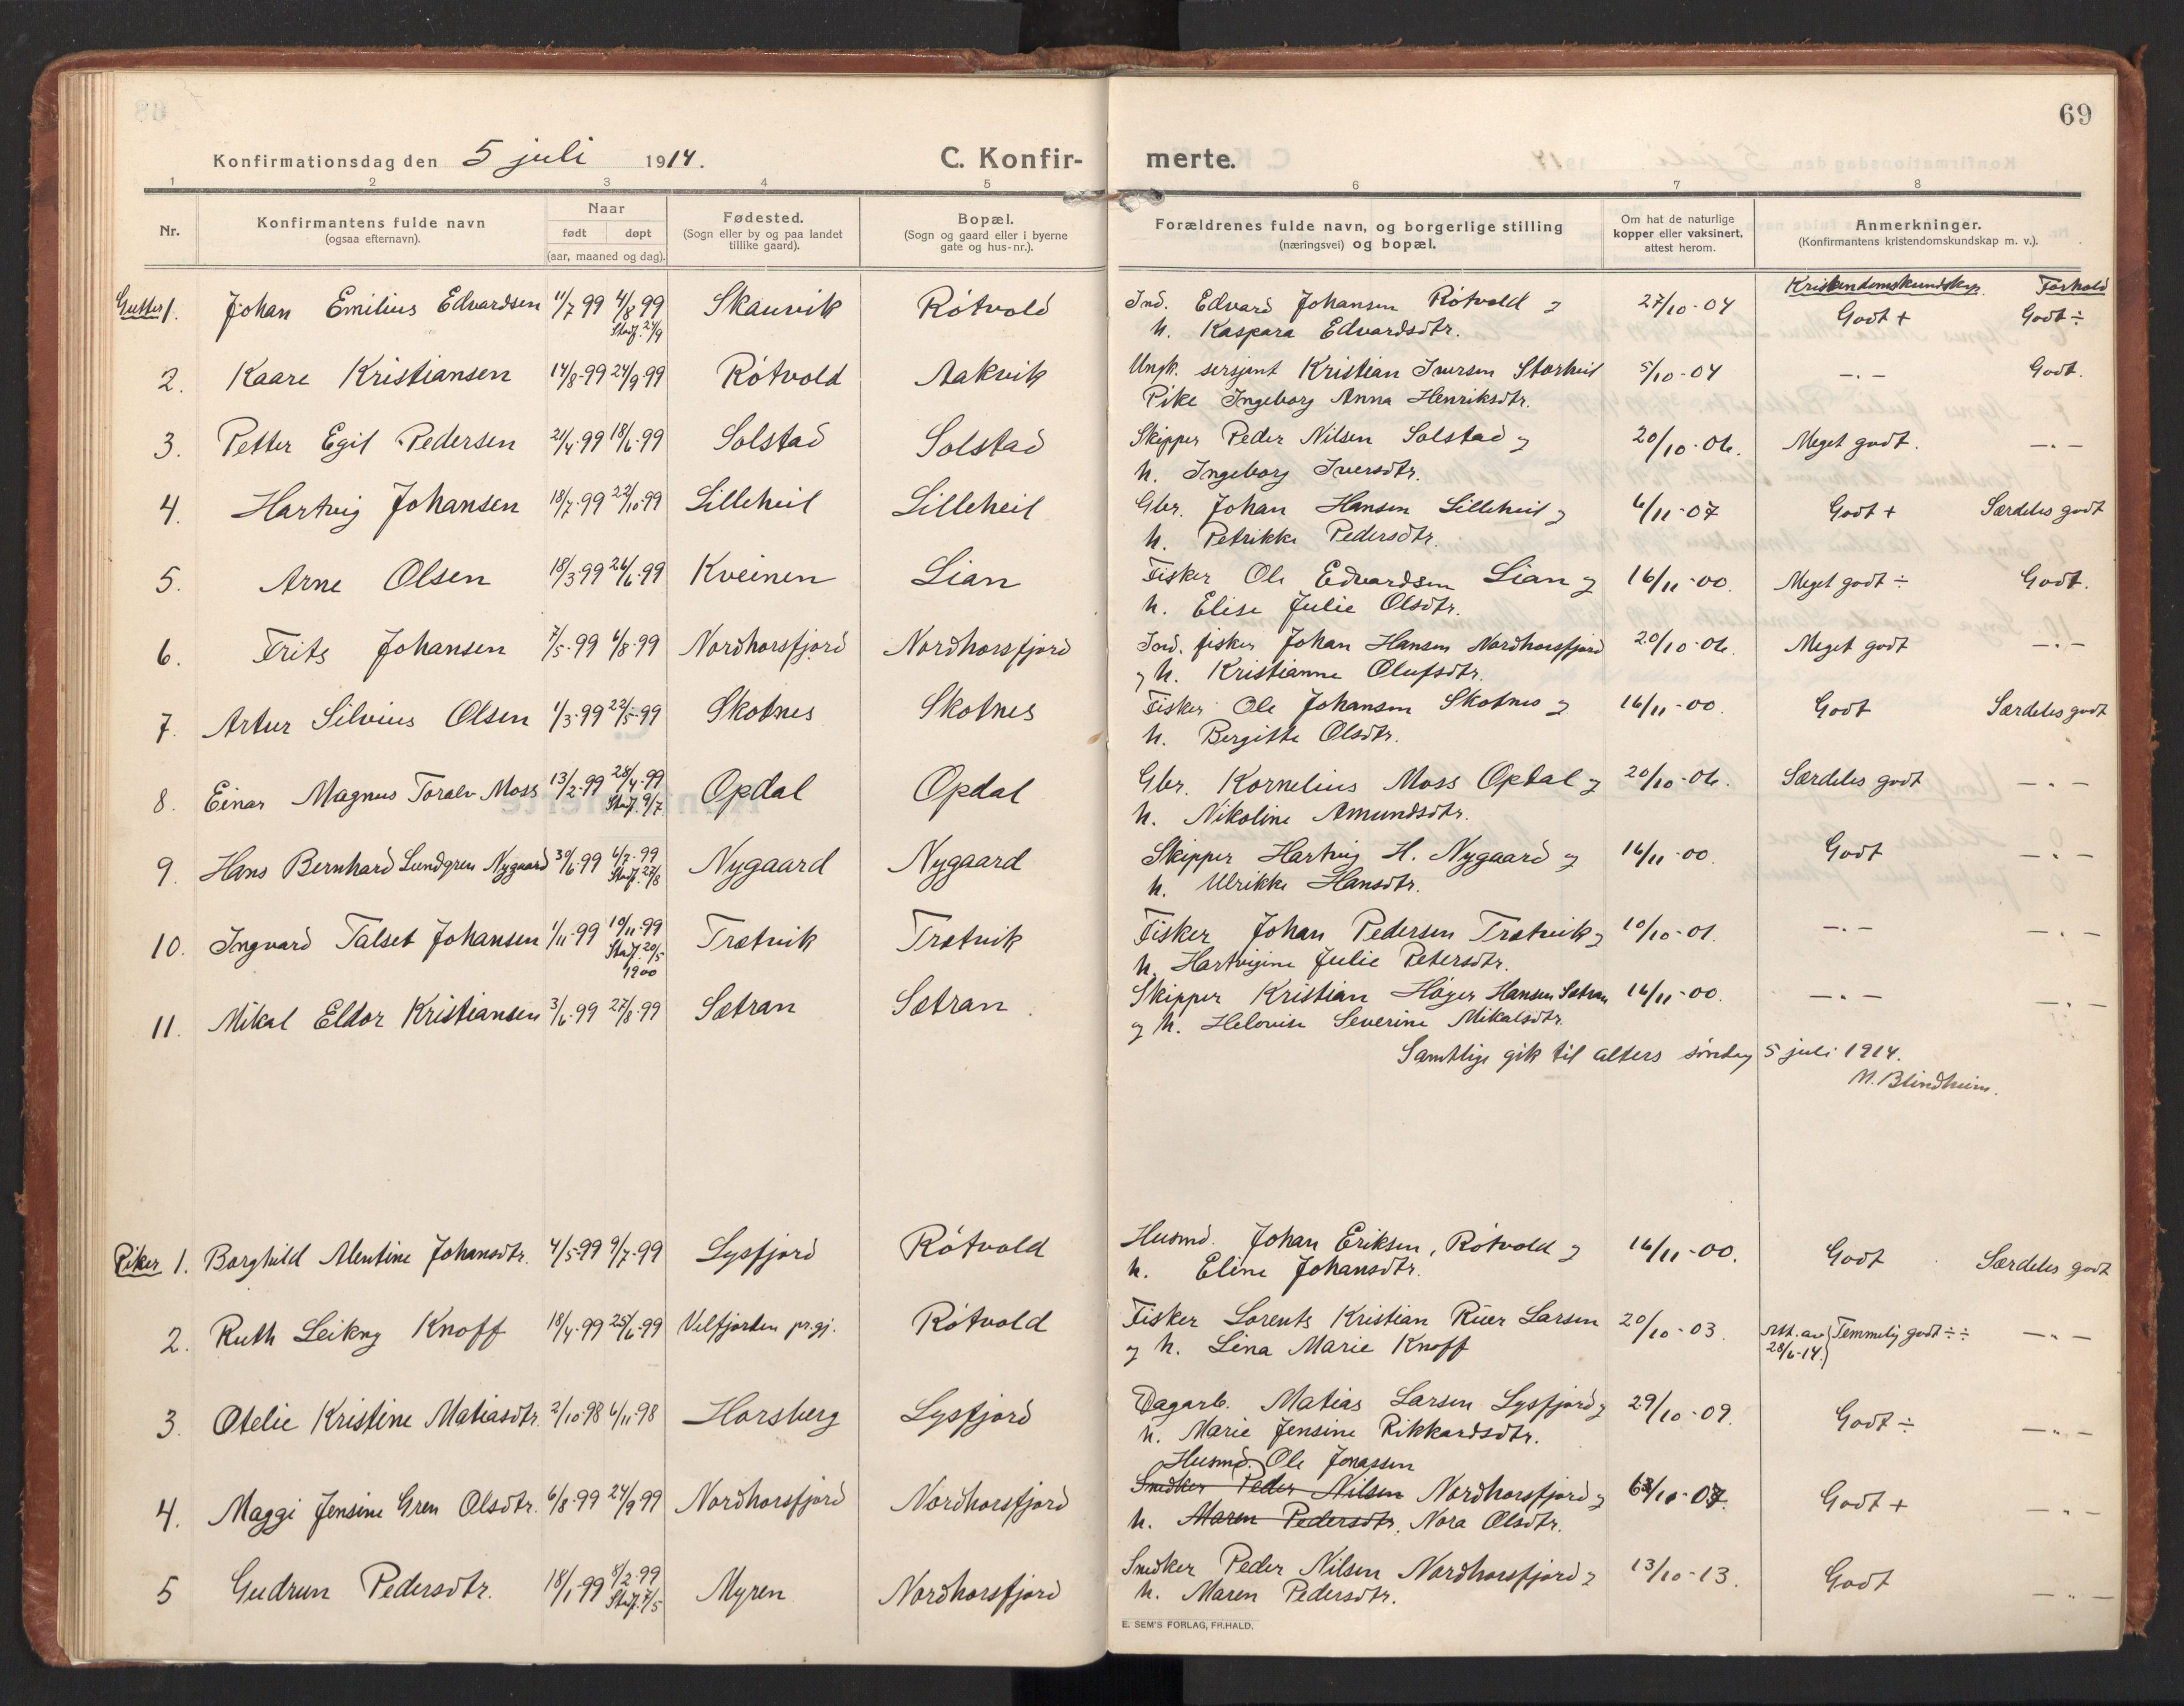 69
Konfirmationsdag den 5 juli 1914. C. Konfir- merte.
1 2 3 4 5 6 7 8
Nr. Konfirmantens fulde navn (ogsaa efternavn). Naar født døpt (aar, maaned og dag). Fødested. (Sogn eller by og paa landet tillike gaard). Bopæl. (Sogn og gaard eller i byerne gate og hus-nr.). Forældrenes fulde navn, og borgerlige stilling (næringsvei) og bopæl. Om hat de naturlige kopper eller vaksinert, attest herom. Anmerkninger. (Konfirmantens kristendomskundskap m. v.).
Kristendomskundskap. Forhold
Gutter 1. Johan Emilius Edvardsen 11/7 99 4/8 99 Skauvik Rötvold Ind. Edvard Johansen Rötvold og 27/10-04 Godt + Godt ÷
Stadf. 24/9 h. Kaspara Edvardsdtr.
2. Kaare Kristiansen 14/8-99 24/9-99 Rötvold Aakvik Ungk. sersjant Kristian Iversen Storheil 5/10-04 —.— Godt.
Pike Ingeborg Anna Henriksdtr.
3. Petter Egil Pedersen 21/4-99 18/6-99 Solstad Solstad Skipper Peder Nilsen Solstad og 20/10-06. Meget godt. —.—
h. Ingeborg Iversdtr.
4. Hartvig Johansen 18/7-99 22/10-99 Lilleheil Lilleheil Gbr. Johan Hansen Lilleheil og 6/11-07 Godt + Særdeles godt
h. Petrikke Pedersdtr.
5. Arne Olsen 18/3-99 26/6-99 Kveinen Lian Fisker Ole Edvardsen Lian og 16/11-00. Meget godt ÷ Godt.
h. Elise Julie Olsdtr.
6. Frits Johansen 7/5-99 6/8-99 Nordhorsfjord Nordhorsfjord Ind. fisker Johan Hansen Nordhorsfjord 20/10-06. Meget godt —.—
og h. Kristianne Olufsdtr.
7. Artur Silvius Olsen 1/3-99 22/5-99 Skotnes Skotnes Fisker Ole Johansen Skotnes og 16/11-00. Godt Særdeles godt
h. Bergitte Olsdtr.
8. Einar Magnus Toralv Moss 13/2-99 28/4-99 Opdal Opdal Gbr. Kornelius Moss Opdal og 20/10-06. Særdeles godt —.—
Stadf. 9/7 h. Nikoline Amundsdtr.
9. Hans Bernhard Lundgren Nygaard 30/6-99 6/7-99 Nygaard Nygaard Skipper Hartvig H. Nygaard og 16/11-00. Godt —.—
Stadf. 27/8 h. Ulrikke Hansdtr.
10. Ingvard Talset Johansen 1/11-99 10/11-99 Trætvik Trætvik Fisker Johan Pedersen Trætvik og 10/10-01. —.— —.—
Stadf. 20/5 1900 h. Hartvigine Julie Petersdtr.
11. Mikal Eldor Kristiansen 3/6-99 27/8-99 Sætran Sætran Skipper Kristian Höyer Hansen Sætran 16/11-00. —.— —.—
og h. Helovise Severine Mikalsdtr.
Samtlige gik til alters söndag 5 juli 1914.
M. Blindheim.
Piker 1. Borghild Alentine Johansdtr. 4/5-99 9/7-99 Lysfjord Rötvold Husmd. Johan Eriksen, Rötvold og 16/11-00. Godt Særdeles godt
h. Eline Johansdtr.
2. Ruth Leikny Knoff 18/4-99 25/6-99 Velfjorden pr.gj. Rötvold Fisker Lorents Kristian Rüer Larsen 20/10-03. Att. av 28/6-14. Temmelig godt ÷÷ —.—
og h. Lina Marie Knoff
3. Otelie Kristine Matiasdtr. 2/10-98 6/11-98 Horsberg Lysfjord Dagarb. Matias Larsen Lysfjord og 29/10-09. Godt ÷ —.—
h. Marie Jensine Rikkardsdtr.
Husmd. Ole Jonassen
4. Maggi Jensine Gren Olsdtr. 6/8-99 24/9 99 Nordhorsfjord Nordhorsfjord Snedker Peder Nilsen Nordhorsfjord og 6/11-07. Godt + —.—
h. Maren Pedersdtr. Nora Olsdtr.
5 Gudrun Pedersdtr. 18/1-99 8/2-99 Myren Nordhorsfjord Snedker Peder Nilsen Nordhorsfjord og 13/10-13. Godt —.—
Stadf. 7/5 h. Maren Pedersdtr.
E. SEM'S FORLAG, FR.HALD.